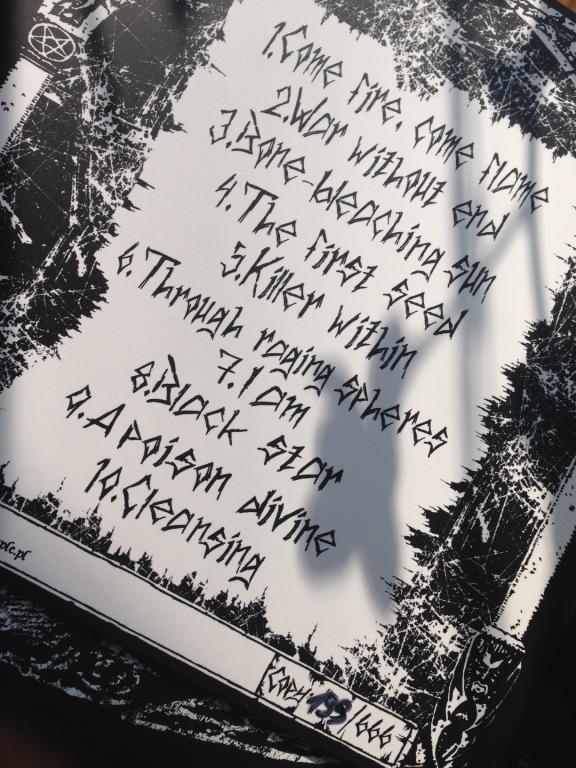 1. Come fire, come flame
2. War without end
3. Bone-bleaching sun
4. The first seed
5. Killer within
6. Through raging spheres
7. I am
8. Black star
9. A poison divine
10. Cleansing
Copy 199/666